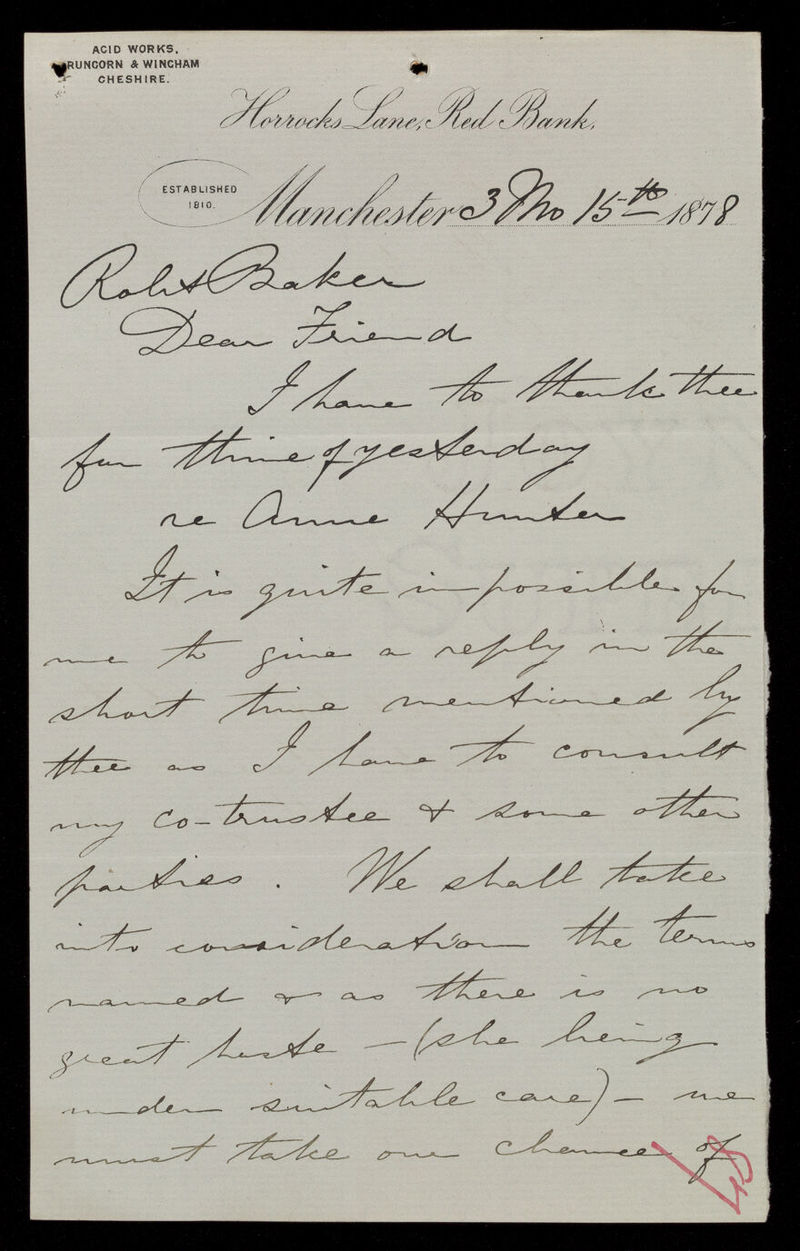 ACID WORKS,
RUNCORN & WINCHAM
CHESHIRE.
Horrocks Lane, Red Bank,
ESTABLISHED
1810.
Manchester 3 Mo 15th 1878
Robt Baker
Dear Friend
I have to thank thee
for thine of yesterday
re Anne Hunter
It is quite impossible for
me to give a reply in the
short time mentioned by
thee as I have to consult
my co-trustee & some other
parties. We shall take
into consideration the terms
named & as there is no
great haste – (she being
under suitable care) – we
must take our chance of